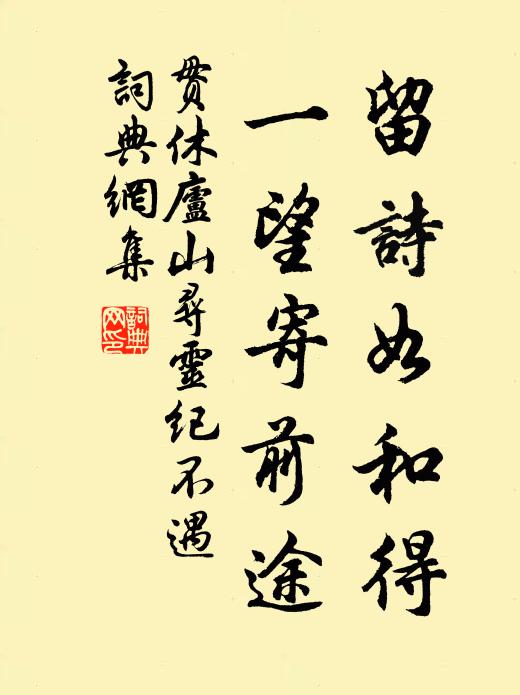 留詩如和得
一望寄前途
貫休廬山尋靈紀不遇
詞典網集
詞典
网印